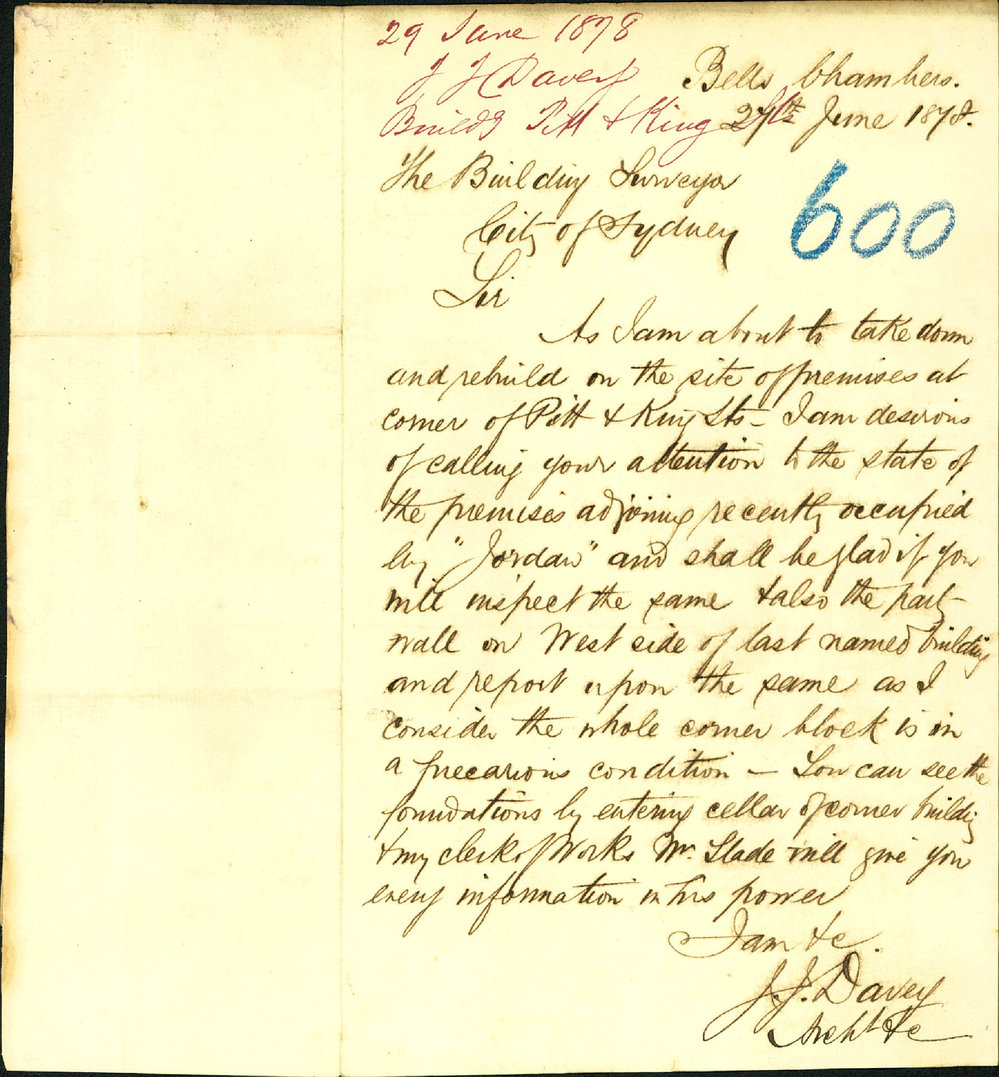 29 June 1878
J J Davey
Buildg Pitt & King Sts
Bells Chambers.
27th June 1878.
600
The Building Surveyor
City of Sydney
Sir
As I am about to take down
and rebuild on the site of premises at
corner of Pitt & King Sts – I am desirous
of calling your attention to the state of
the premises adjoining recently occupied
by "Jordan" and shall be glad if you
will inspect the same & also the party
wall on West side of last named building
and report upon the same as I
consider the whole corner block is in
a precarious condition – You can see the
foundations by entering cellar of corner building
& my clerk of Works Mr. Slade will give you
every information in his power
I am &c.
J. J. Davey
Archt &c